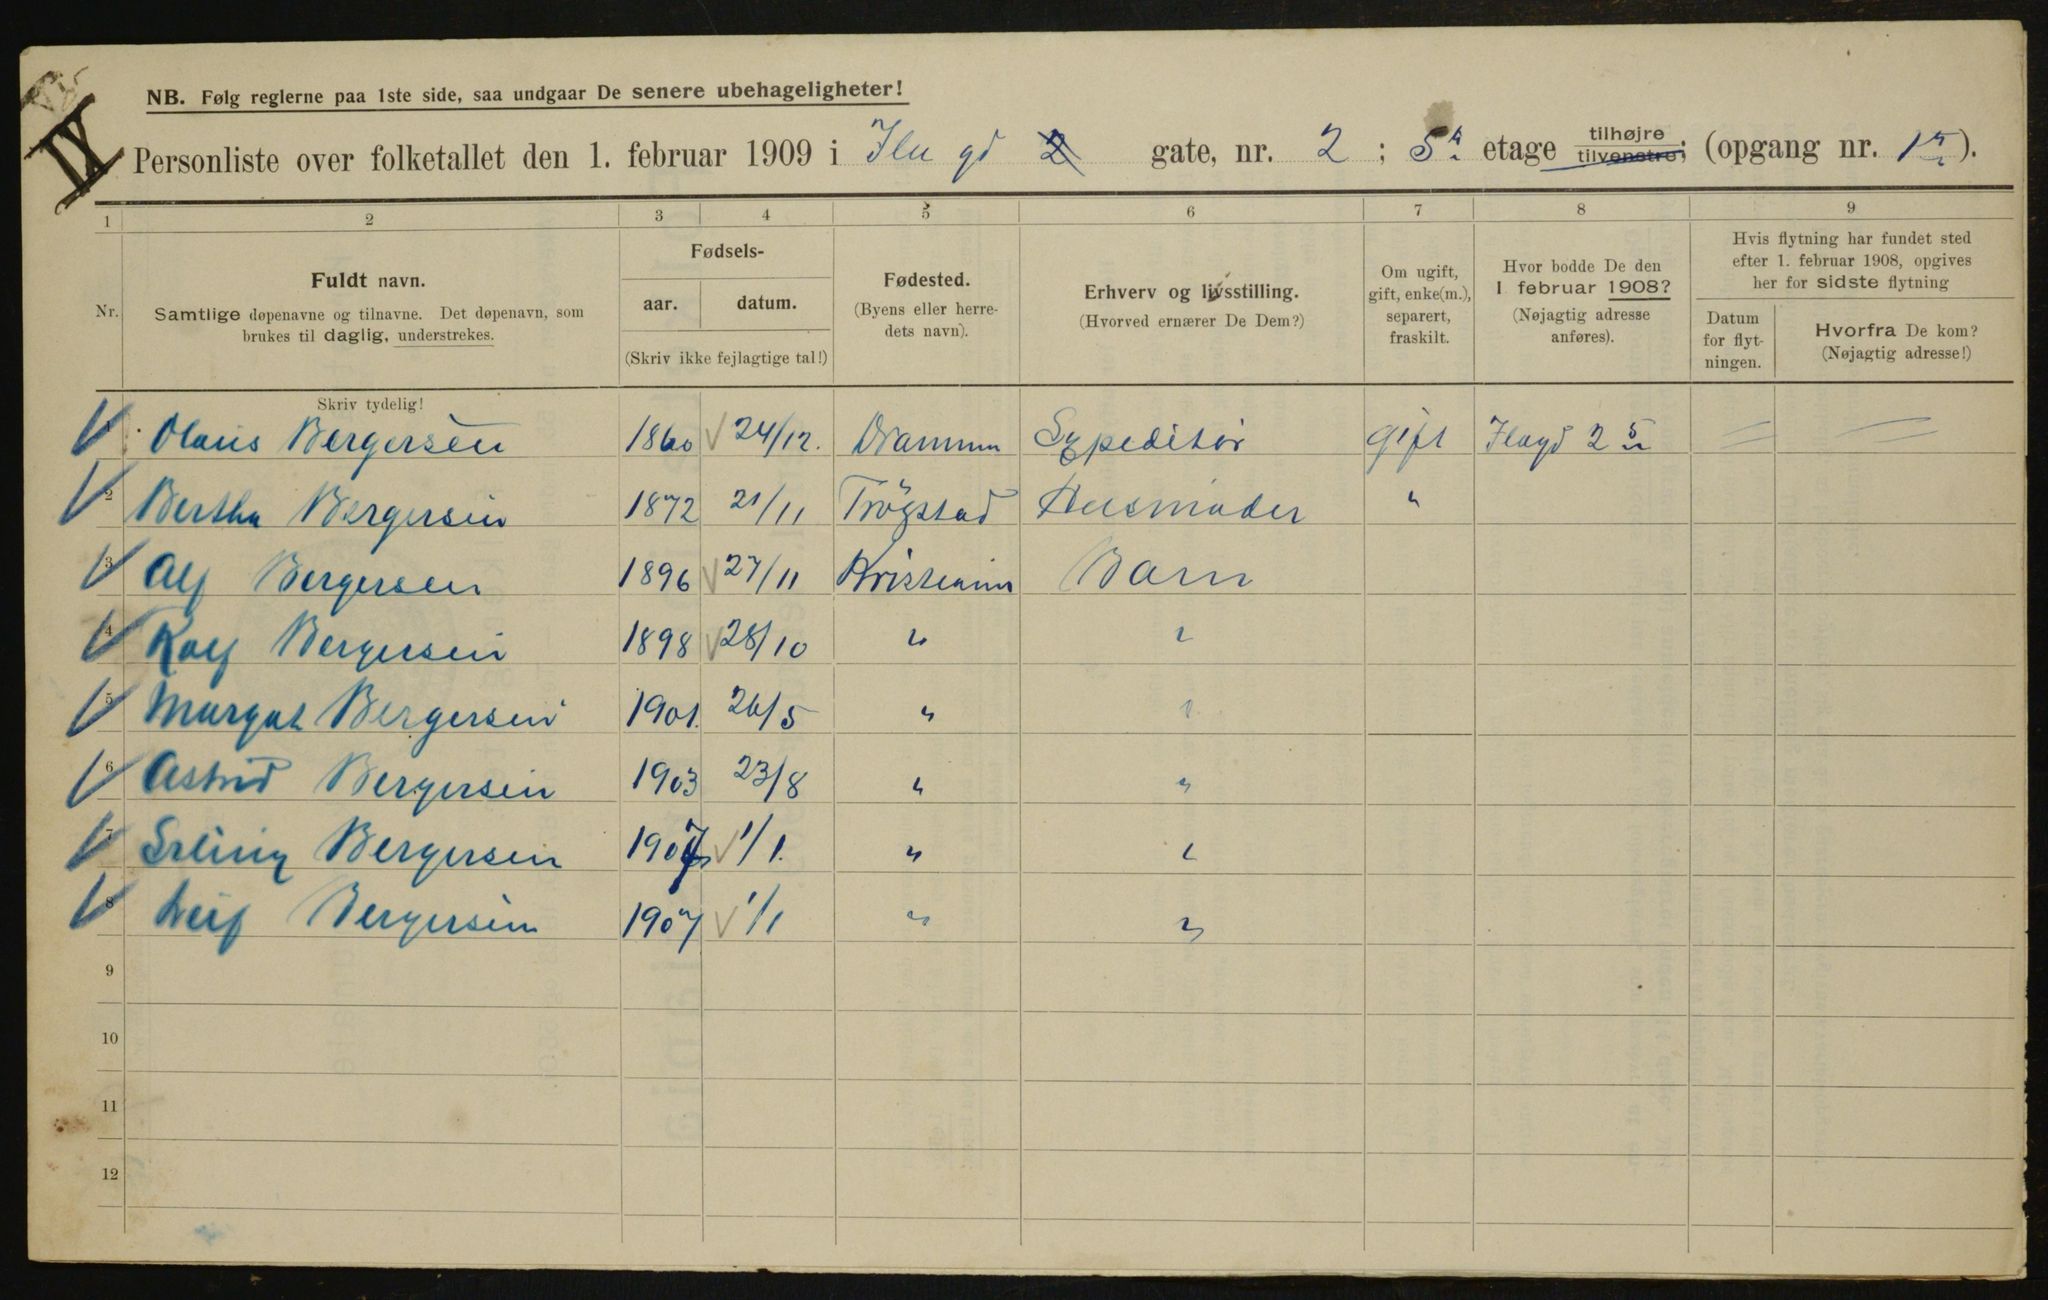 IX
NB. Følg reglerne paa 1ste side, saa undgaar De senere ubehageligheter!
Personliste over folketallet den 1. februar 1909 i Ilagd 2 gate, nr. 2 ; 5 etage tilhøjre tilvenstre; (opgang nr. 1 ).
1 2 3 4 5 6 7 8 9
Nr.
Fuldt navn.
Samtlige døpenavne og tilnavne. Det døpenavn, som
brukes til daglig, understrekes.
Fødsels-
aar. datum.
(Skriv ikke fejlagtige tal!)
Fødested.
(Byens eller herre-
dets navn).
Erhverv og livsstilling.
(Hvorved ernærer De Dem?)
Om ugift,
gift, enke(m.),
separert,
fraskilt.
Hvor bodde De den
1 februar 1908?
(Nøjagtig adresse
anføres).
Hvis flytning har fundet sted
efter 1. februar 1908, opgives
her for sidste flytning
Datum
for flyt-
ningen.
Hvorfra De kom?
(Nøjagtig adresse!)
Skriv tydelig!
1 Olaus Bergersen 1860 24/12. Drammen Expeditør gift Ilagd 2 5
2 Bertha Bergersen 1872 21/11 Trøgstad Husmoder "
3 Alf Bergersen 1896 27/11 Kristiania Barn
4 Rolf Bergersen 1898 28/10 " "
5 Margot Bergersen 1901. 26/5 " "
6 Astrid Bergersen 1903 23/8 " "
7 Erling Bergersen 1907 1/1. " "
8 Leif Bergersen 1907 1/1 " "
9
10
11
12